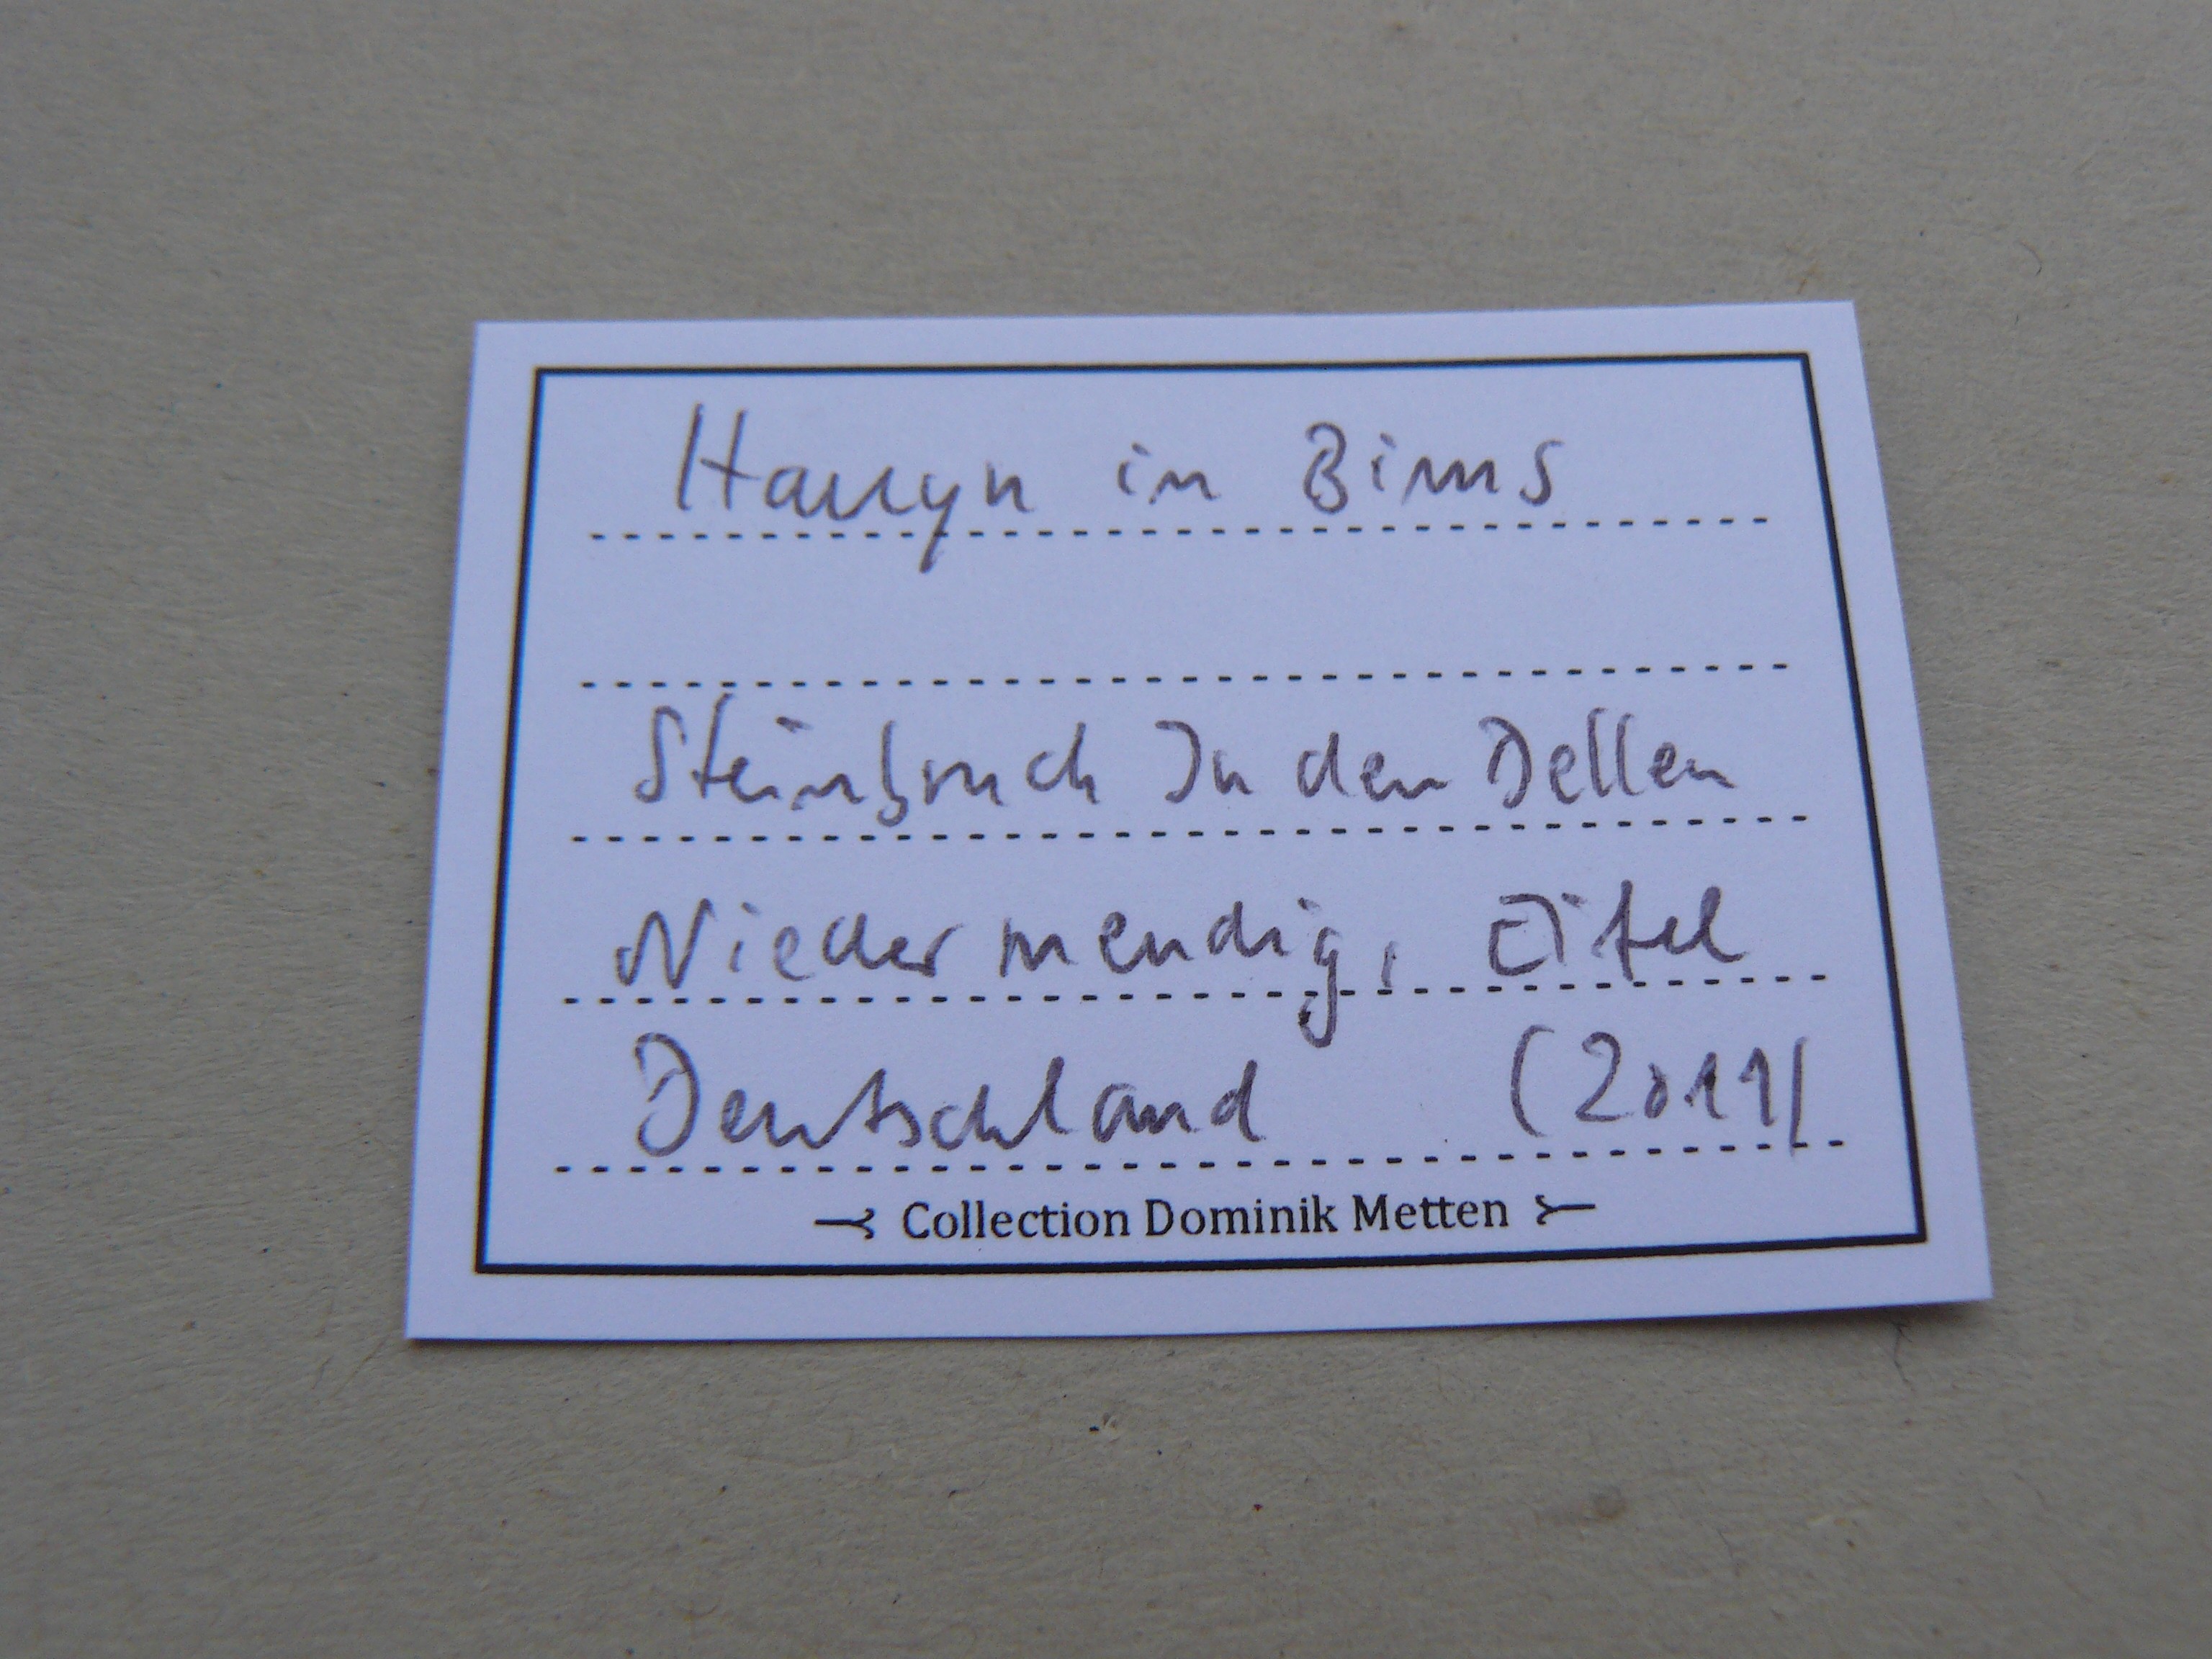 Hauyn in Bims
Steinbruch In den Dellen
Niedermendig, Eifel
Deutschland (2011)
Collection Dominik Metten